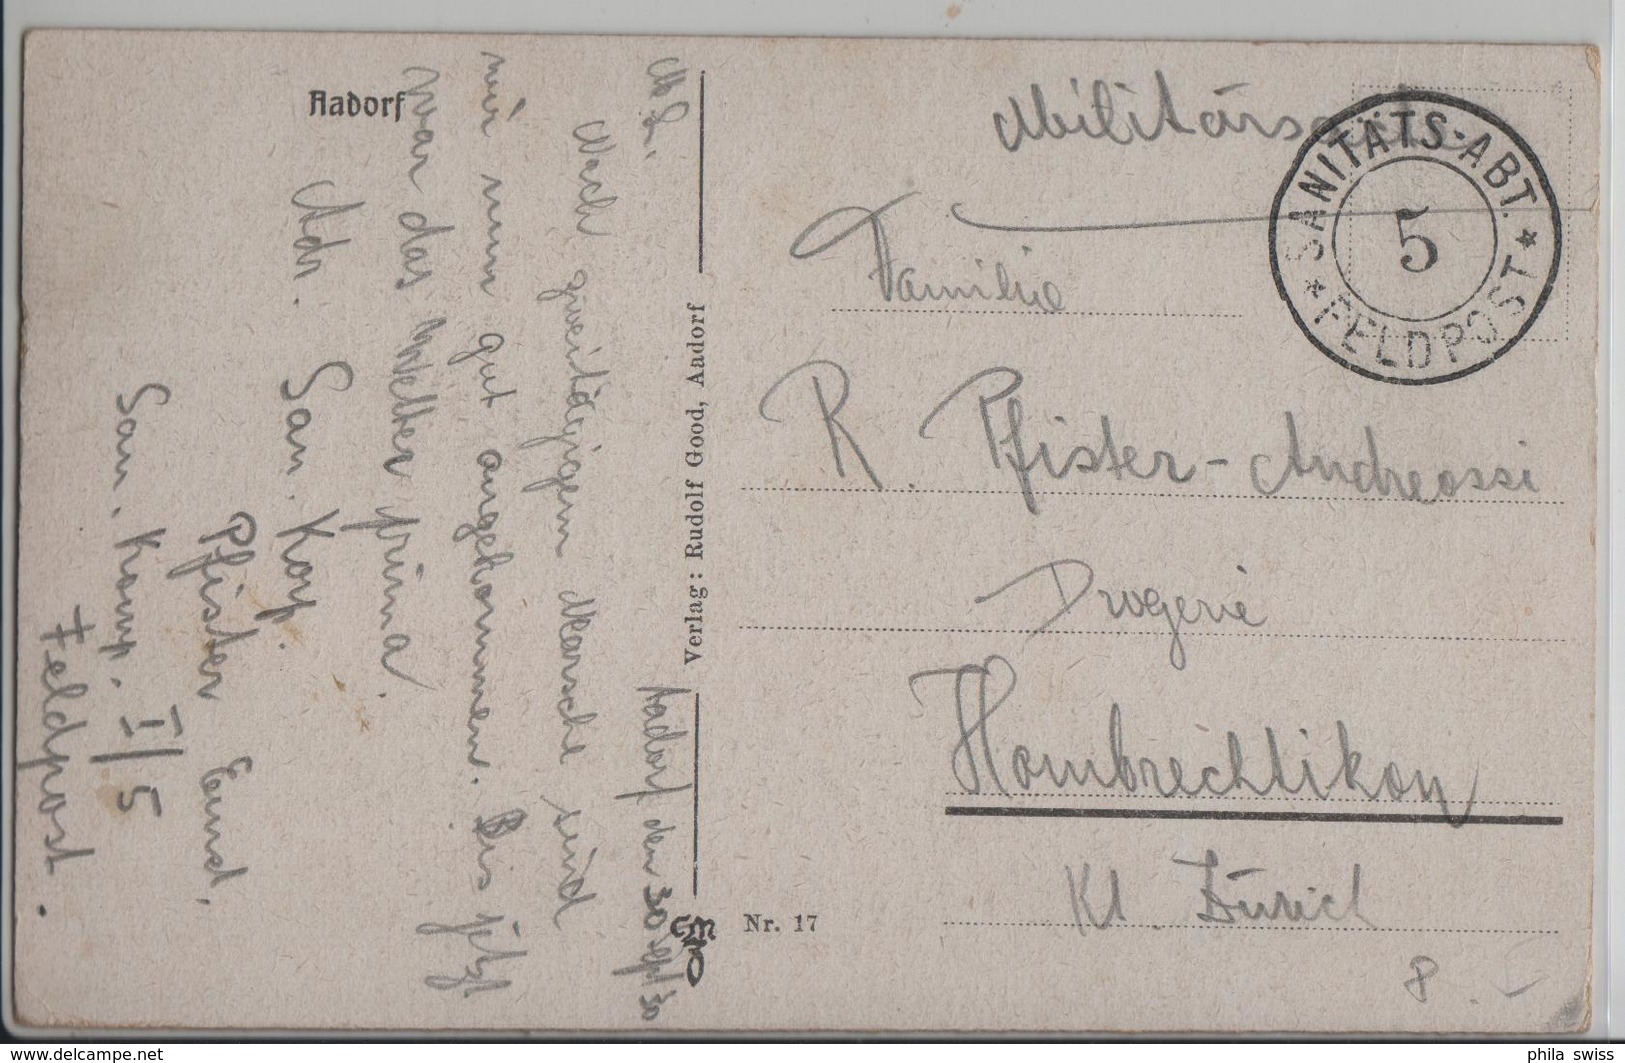 Aadorf
Militärsache
SANITÄTS-ABT.
5
* FELDPOST *
Familie
R. Pfister-Andreossi
Drogerie
Hombrechtikon
Kt. Zürich
Verlag: Rudolf Good, Aadorf
Nr. 17
Aadorf den 30. Sept. 30
M. L.
Nach zweitägigem Marsche sind
wir nun gut angekommen. Bis jetzt
war das Wetter prima.
Adr. San. Korp.
Pfister Emil,
San. Komp. I/5
Feldpost.
8.
www.delcampe.net
phila_swiss